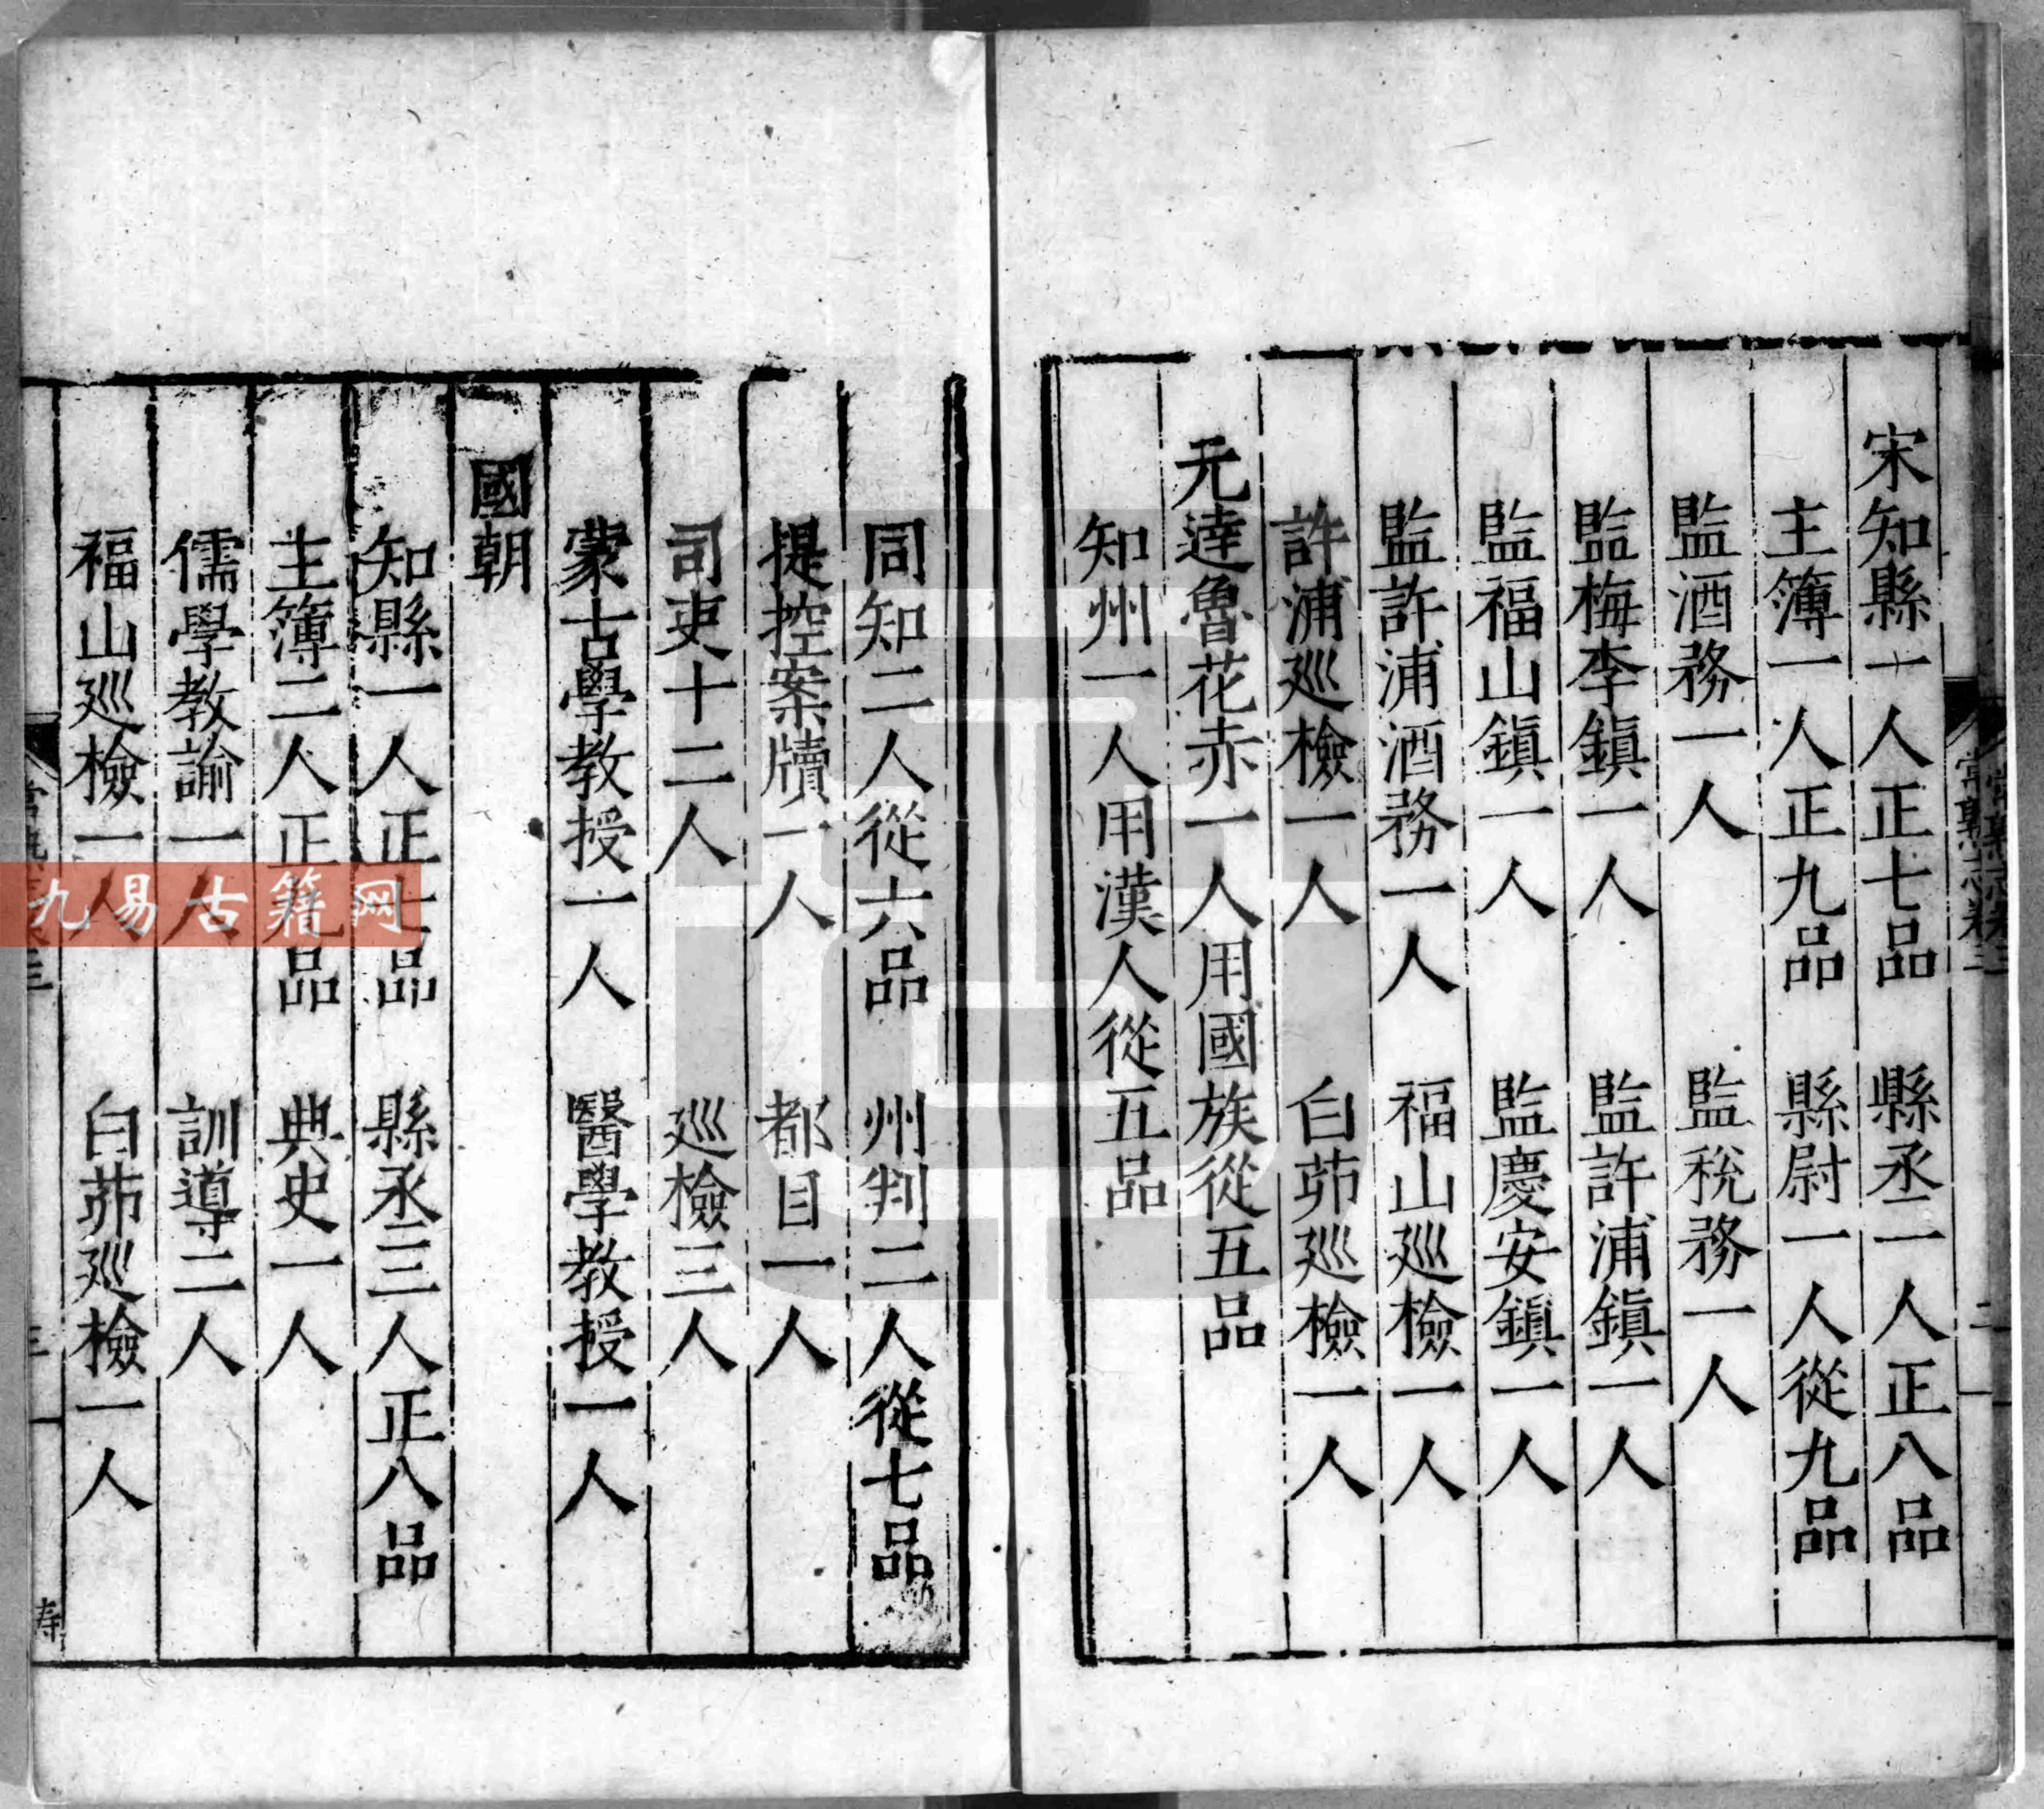 宋知縣一人正七品　縣丞一人正八品
主簿一人正九品　縣尉一人從九品
監酒務一人　監稅務一人
監梅李鎮一人　監許浦鎮一人
監福山鎮一人　監慶安鎮一人
監許浦酒務一人　福山巡檢一人
許浦巡檢一人　白茆巡檢一人
元達魯花赤一人用國族從五品
知州一人用漢人從五品
同知二人從六品　州判二人從七品
提控案牘一人　都目一人
司吏十二人　巡檢三人
蒙古學教授一人　醫學教授一人
國朝
知縣一人正七品　縣丞三人正八品
主簿二人正九品　典史一人
儒學教諭一人　訓導二人
福山巡檢一人　白茆巡檢一人
九易古籍网